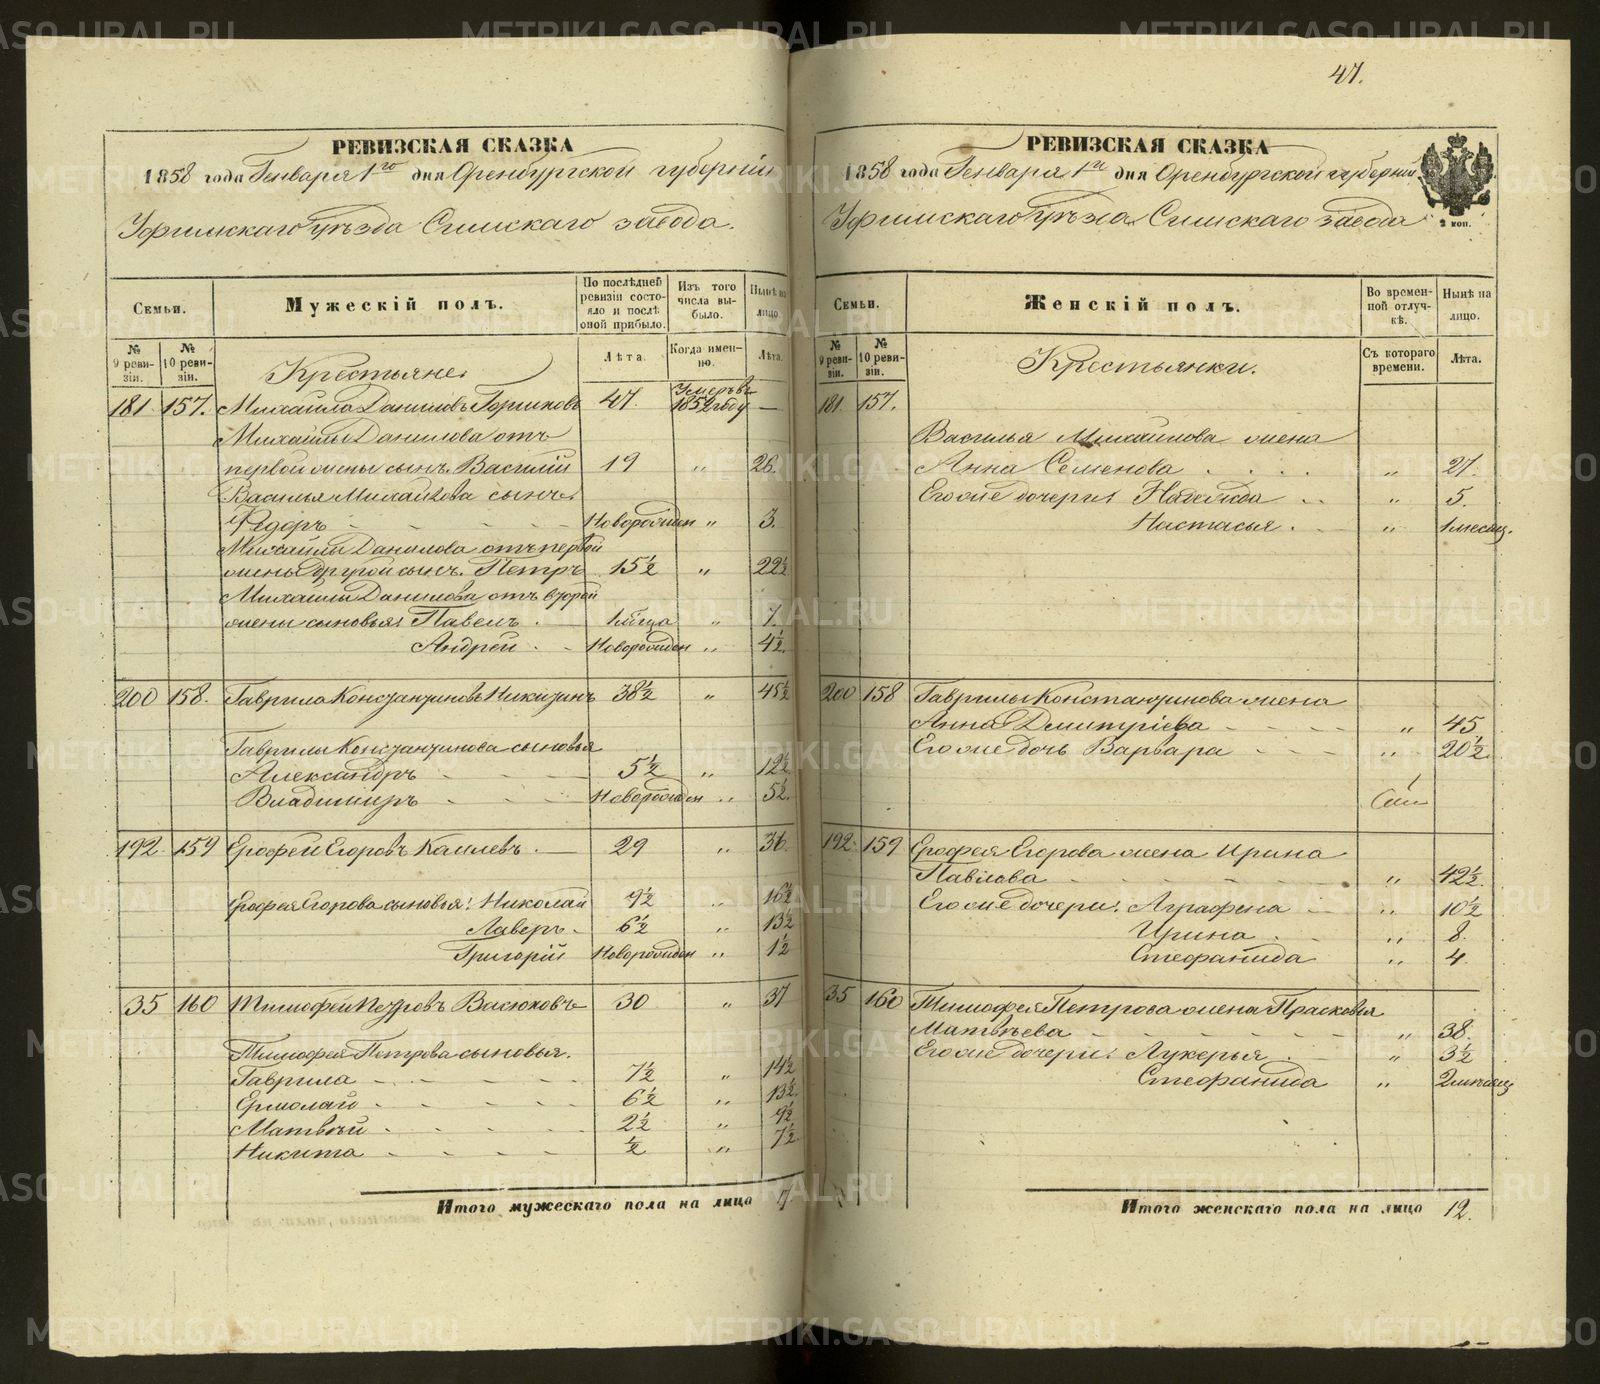 47.
РЕВИЗСКАЯ СКАЗКА
1858 года Генваря 1го дня Оренбургской губернiи
Уфимскаго уѣзда Симскаго завода.
Семьи. Мужескiй полъ. По послѣдней ревизiи состояло и послѣ оной прибыло. Изъ того числа выбыло. Нынѣ на лицо.
№ 9 ревизiи. № 10 ревизiи. Крестьяне Лѣта. Когда именно. Лѣта.
181 157. Михайла Даниловъ Горшковъ 47 Умеръ въ 1852 году —
Михайлы Данилова отъ
первой жены сынъ Василiй 19 " 26.
Василья Михайлова сынъ
Фёдоръ Новорожден " 3.
Михайлы Данилова отъ первой
жены другой сынъ. Петръ 15½ " 22½
Михайлы Данилова отъ второй
жены сыновья: Павелъ 1 мѣсца " 7.
Андрей Новорожден " 4½
200 158. Гаврила Константиновъ Никитинъ 38½ " 45½
Гаврилы Константинова сыновья
Александръ 5½ " 12½
Владимиръ Новорожден " 5½
192 159 Ерофей Егоровъ 29 " 36.
Ерофея Егорова сыновья: Николай 9½ " 16½
Лаверъ 6½ " 13½
Григорiй Новорожден " 1½
35 160 Тимофей Петровъ Васюковъ 30 " 37
Тимофея Петрова сыновья.
Гаврила 7½ " 14½
Ермолай 6½ " 13½
Матвѣй 2½ " 9½
Никита ½ " 7½
Итого мужескаго пола на лицо 17
РЕВИЗСКАЯ СКАЗКА
1858 года Генваря 1го дня Оренбургской губернiи
Уфимскаго уѣзда Симскаго завода
2 коп.
Семьи. Женскiй полъ. Во временной отлучкѣ. Нынѣ на лицо.
№ 9 ревизiи. № 10 ревизiи. Крестьянки. Съ котораго времени. Лѣта.
181 157.
Василья Михайлова жена
Анна Семенова " 27.
Его же дочери: Надежда " 5.
Настасья " 1 месяц.
200 158 Гаврилы Константинова жена
Анна Дмитрiева " 45
Его же дочь Варвара " 20½
192 159 Ерофея Егорова жена Ирина
Павлова " 42½
Его же дочери: Аграфена " 10½
Ирина " 8.
Стефанида " 4.
35 160 Тимофея Петрова жена Прасковья
Матвѣева " 38.
Его же дочери: Лукерья " 3½
Стефанида " 2 мѣсяц
Итого женскаго пола на лицо 12.
METRIKI.GASO-URAL.RU